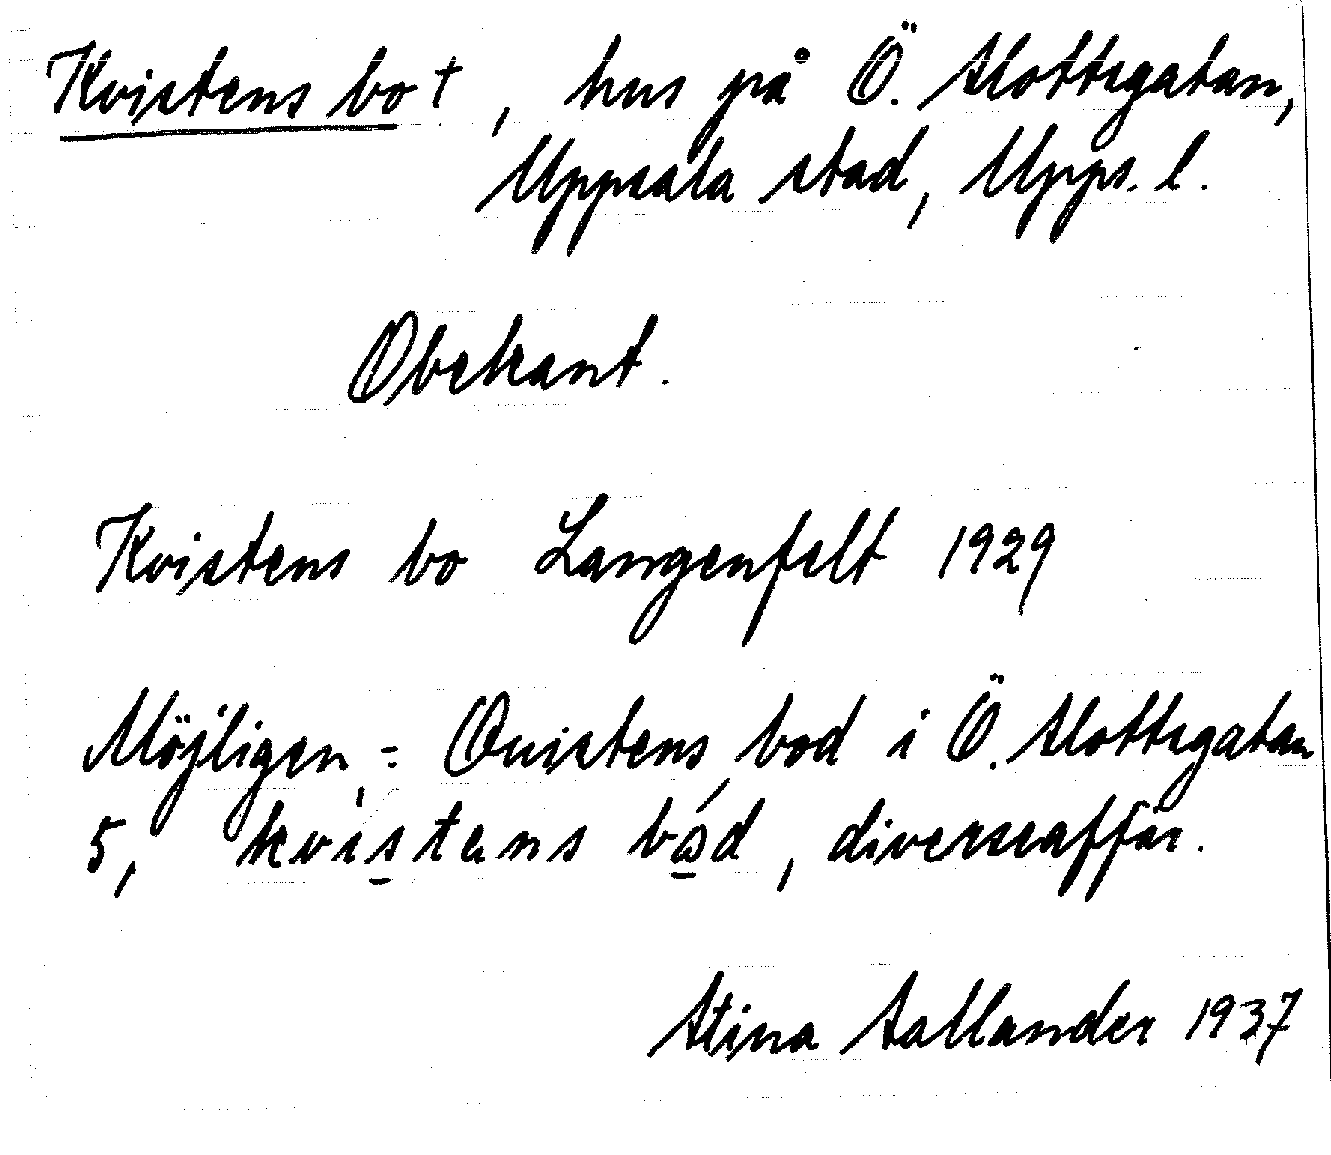 Kvistens bo †, hus på Ö. Slottsgatan,
Uppsala stad, Upps. l.
Obekant.
Kvistens bo Langenfelt 1929
Möjligen = Qvistens bod i Ö. Slottsgatan
5, kvistens bod, diverseaffär.
Stina Sallander 1937